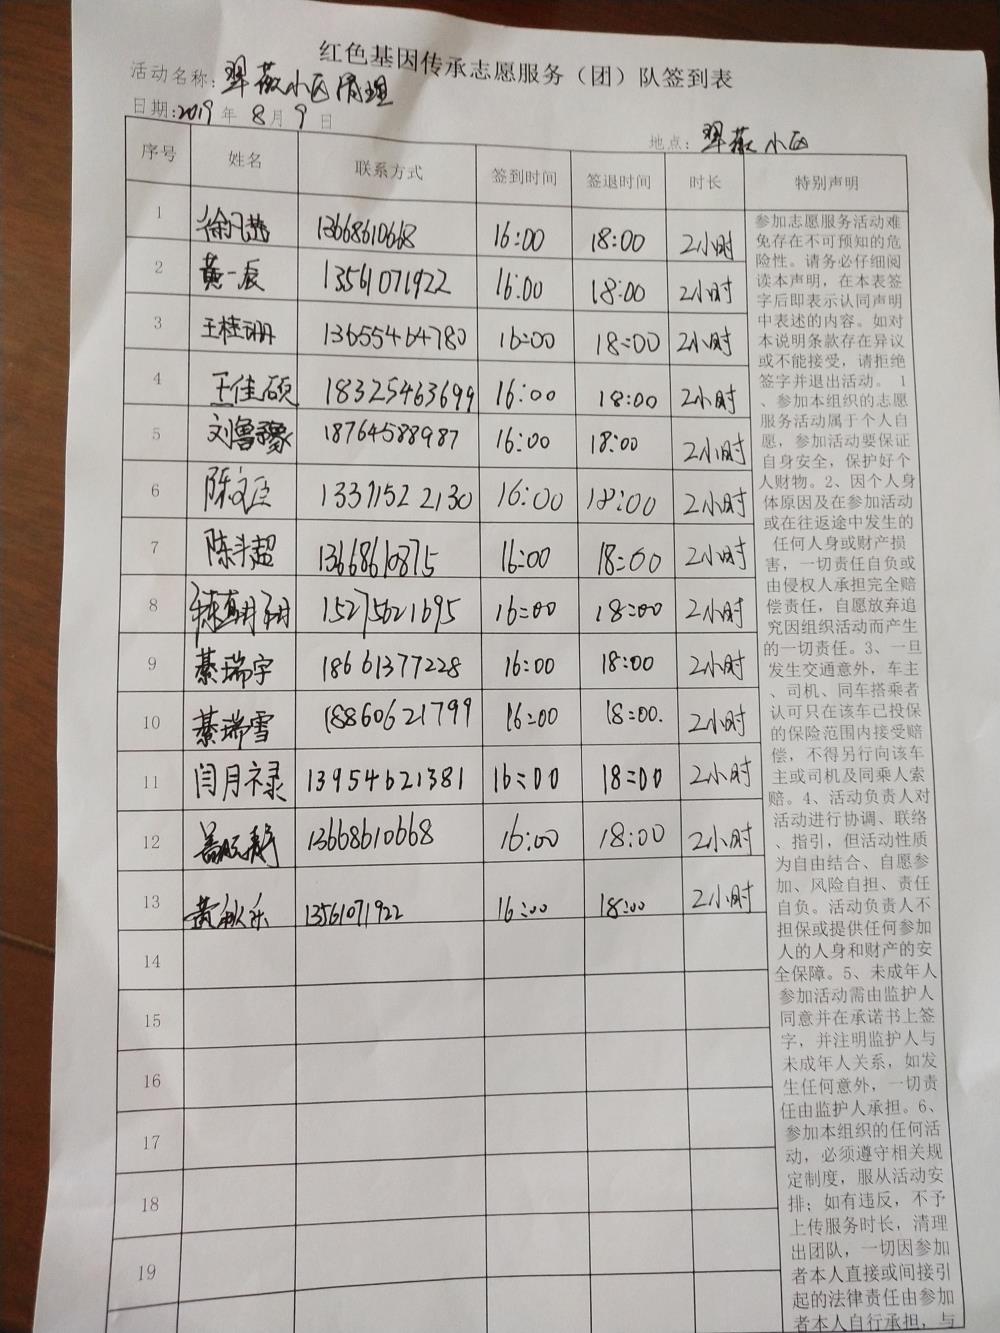 红色基因传承志愿服务（团）队签到表
活动名称：翠薇小区清理
日期:2019年8月9日
地点：翠薇小区
序号 姓名 联系方式 签到时间 签退时间 时长 特别声明
1 徐凡燕 13668610668 16:00 18:00 2小时
2 黄一辰 13561071922 16:00 18:00 2小时
3 王桂珊 13655464780 16:00 18:00 2小时
4 王佳硕 18325463699 16:00 18:00 2小时
5 刘鲁豫 18764588987 16:00 18:00 2小时
6 陈文臣 13371522130 16:00 18:00 2小时
7 陈斗超 13668610875 16:00 18:00 2小时
8 15275621695 16:00 18:00 2小时
9 綦瑞宇 18661377228 16:00 18:00 2小时
10 綦瑞雪 18860621799 16:00 18:00. 2小时
11 闫月禄 13954621381 16:00 18:00 2小时
12 13668610668 16:00 18:00 2小时
13 黄秋乐 13561071922 16:00 18:00 2小时
14
15
16
17
18
19
参加志愿服务活动难
免存在不可预知的危
险性。请务必仔细阅
读本声明，在本表签
字后即表示认同声明
中表述的内容。如对
本说明条款存在异议
或不能接受，请拒绝
签字并退出活动。 1
、参加本组织的志愿
服务活动属于个人自
愿，参加活动要保证
自身安全，保护好个
人财物。2、因个人身
体原因及在参加活动
或在往返途中发生的
任何人身或财产损
害，一切责任自负或
由侵权人承担完全赔
偿责任，自愿放弃追
究因组织活动而产生
的一切责任。3、一旦
发生交通意外，车主
、司机、同车搭乘者
认可只在该车已投保
的保险范围内接受赔
偿，不得另行向该车
主或司机及同乘人索
赔。4、活动负责人对
活动进行协调、联络
、指引，但活动性质
为自由结合、自愿参
加、风险自担、责任
自负。活动负责人不
担保或提供任何参加
人的人身和财产的安
全保障。5、未成年人
参加活动需由监护人
同意并在承诺书上签
字，并注明监护人与
未成年人关系，如发
生任何意外，一切责
任由监护人承担。6、
参加本组织的任何活
动，必须遵守相关规
定制度，服从活动安
排；如有违反，不予
上传服务时长，清理
出团队，一切因参加
者本人直接或间接引
起的法律责任由参加
者本人自行承担，与